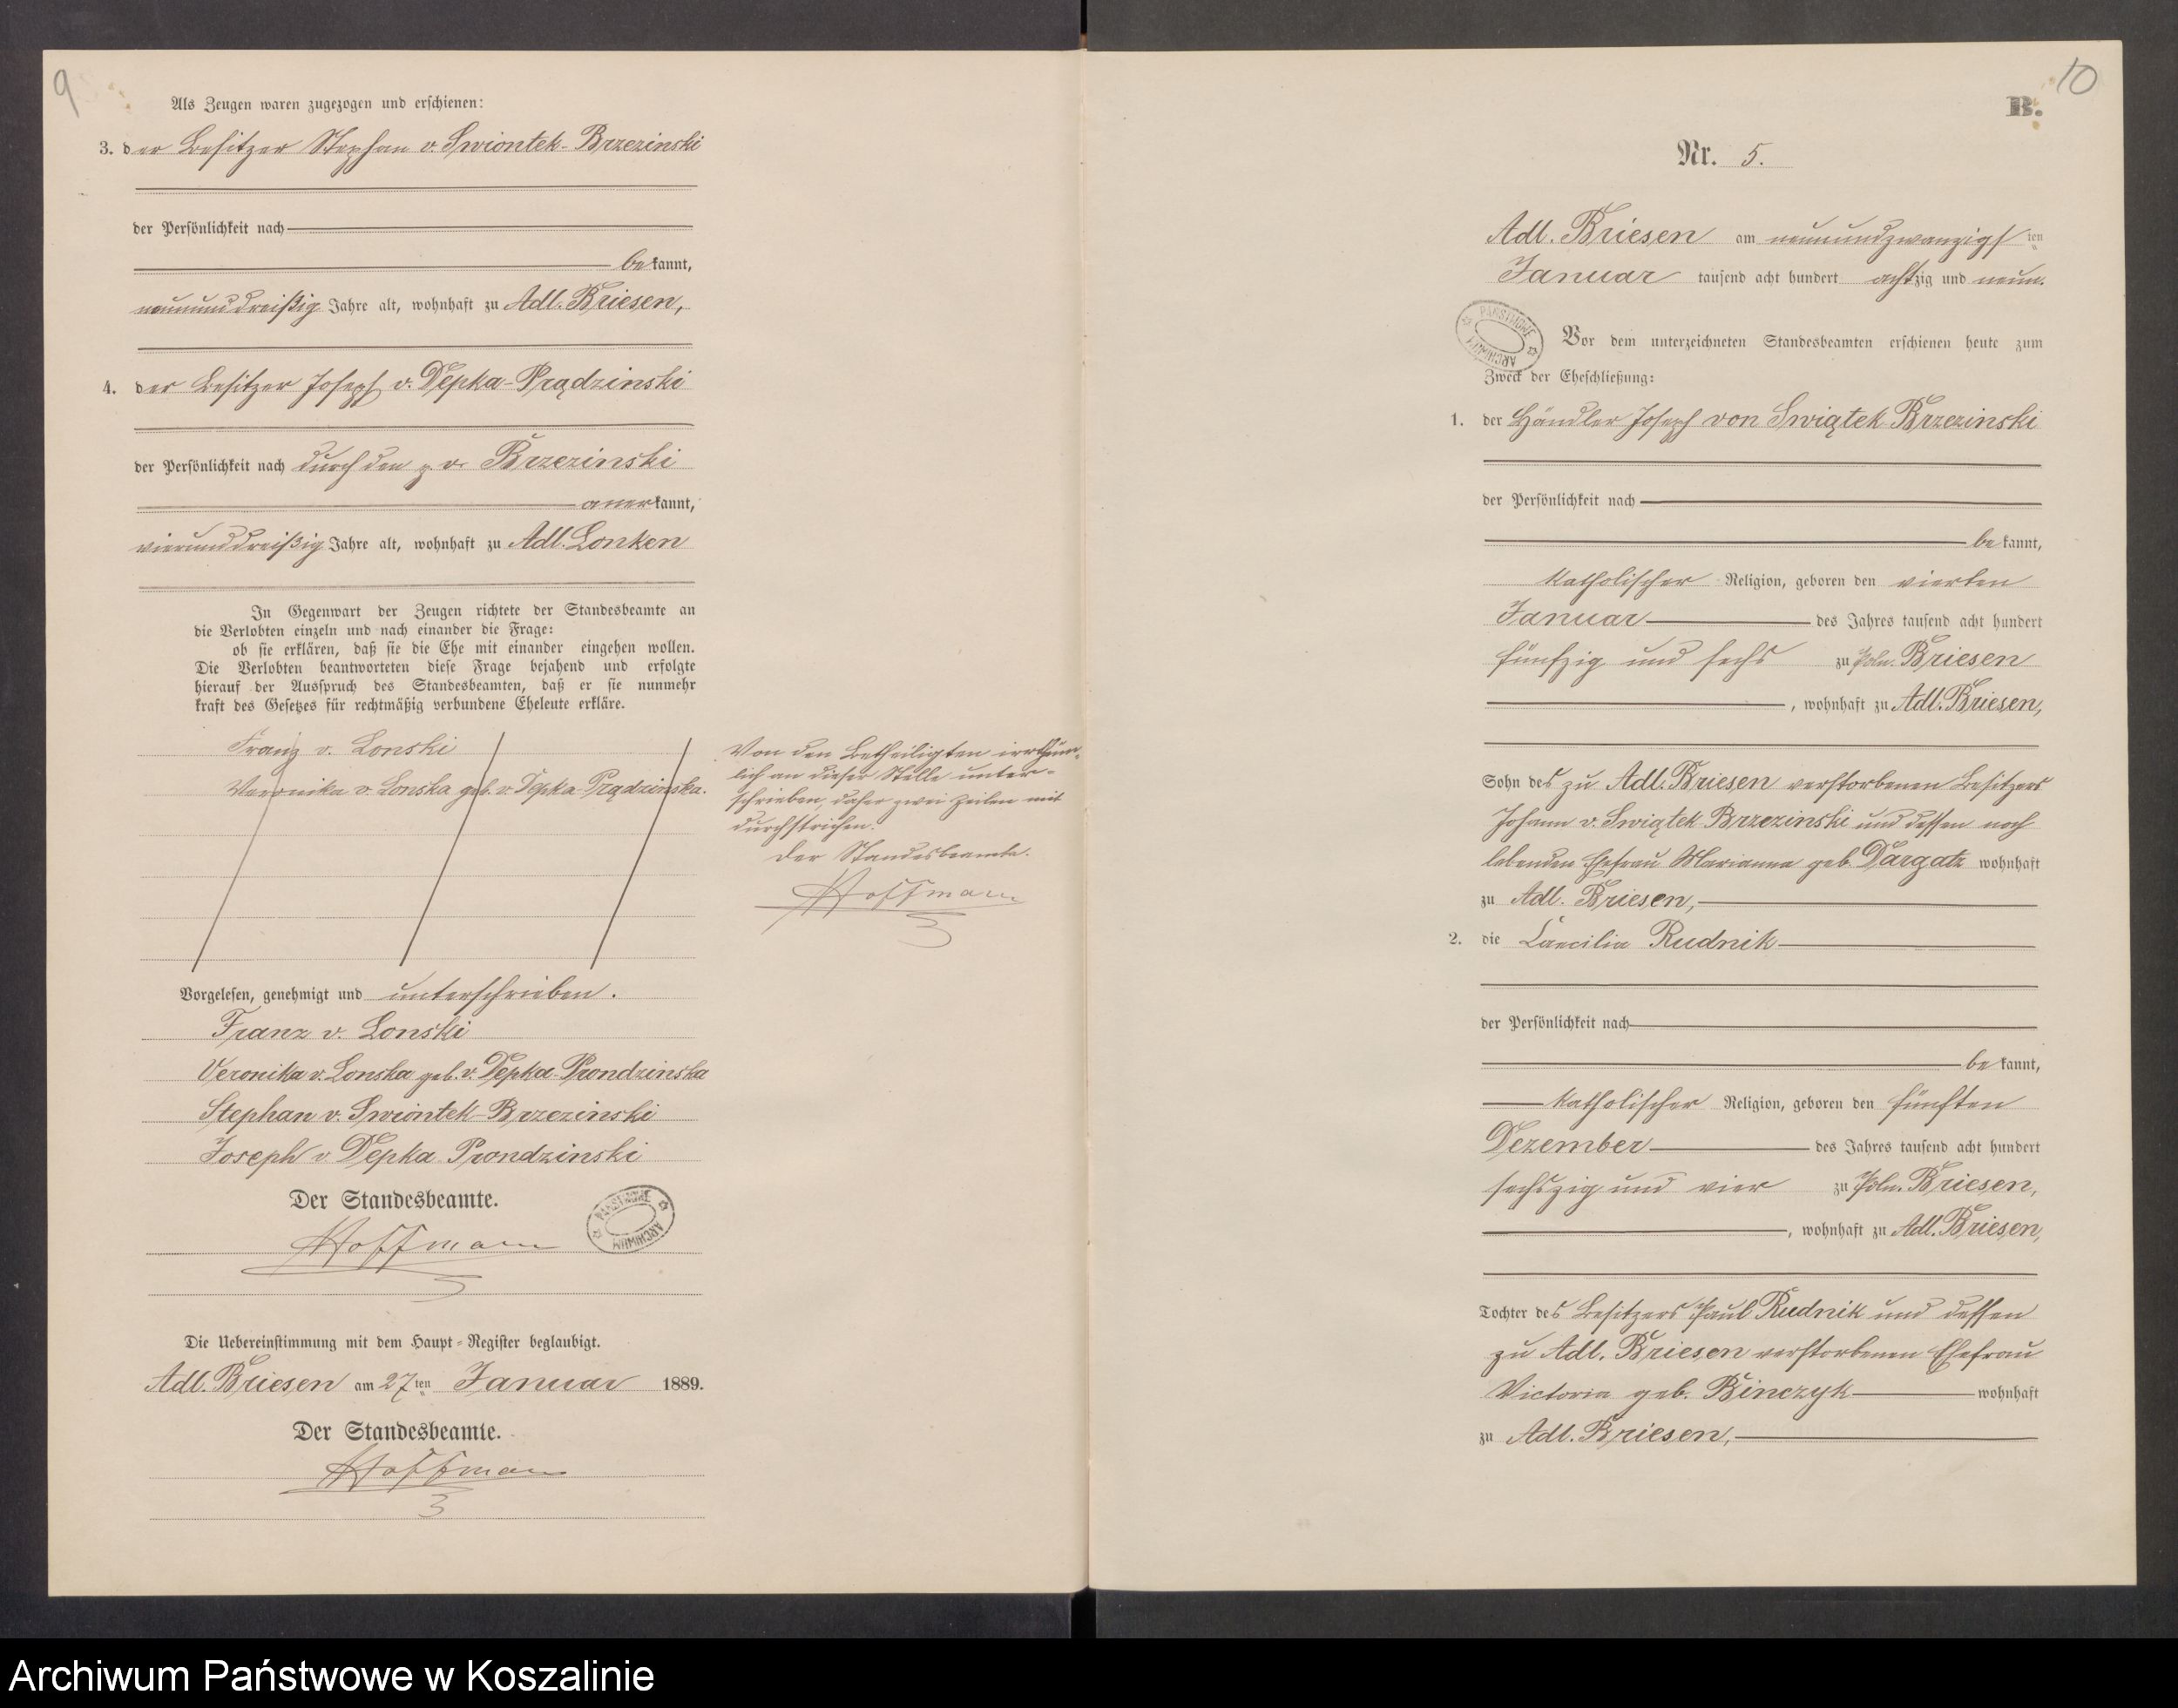 9
Als Zeugen waren zugezogen und erschienen:
3. der Besitzer Stephan v. Swiontek-Brzezinski
der Persönlichkeit nach
bekannt,
neununddreißig Jahre alt, wohnhaft zu Adl. Briesen,
4. der Besitzer Joseph v. Depka-Prądzinski
der Persönlichkeit nach durch den p. v. Brzezinski
anerkannt,
vierunddreißig Jahre alt, wohnhaft zu Adl. Lonken
In Gegenwart der Zeugen richtete der Standesbeamte an
die Verlobten einzeln und nach einander die Frage:
ob sie erklären, daß sie die Ehe mit einander eingehen wollen.
Die Verlobten beantworteten diese Frage bejahend und erfolgte
hierauf der Ausspruch des Standesbeamten, daß er sie nunmehr
kraft des Gesetzes für rechtmäßig verbundene Eheleute erkläre.
Franz v. Lonski
Veronika v. Lonska geb. v. Depka-Prądzinska.
Von den Betheiligten irrthüm-
lich an dieser Stelle unter-
schrieben, daher zwei Zeilen mit
durchstrichen.
Der Standesbeamte.
Hoffmann
Vorgelesen, genehmigt und unterschrieben.
Franz v. Lonski
Veronika v. Lonska geb. v. Depka-Prondzinska
Stephan v. Swiontek-Brzezinski
Joseph v Depka Prondzinski
Der Standesbeamte.
Hoffmann
PAŃSTWOWE ARCHIWUM
Die Uebereinstimmung mit dem Haupt-Register beglaubigt.
Adl. Briesen am 27ten Januar 1889.
Der Standesbeamte.
Hoffmann
10
B.
Nr. 5.
Adl. Briesen am neunundzwanzigsten
Januar tausend acht hundert achtzig und neun.
PAŃSTWOWE ARCHIWUM
Vor dem unterzeichneten Standesbeamten erschienen heute zum
Zweck der Eheschließung:
1. der Händler Joseph von Swiątek-Brzezinski
der Persönlichkeit nach
bekannt,
katholischer Religion, geboren den vierten
Januar des Jahres tausend acht hundert
fünfzig und sechs zu Poln. Briesen
, wohnhaft zu Adl. Briesen,
Sohn des zu Adl. Briesen verstorbenen Besitzers
Johann v. Swiątek-Brzezinski und dessen noch
lebenden Ehefrau Marianna geb. Dargatz wohnhaft
zu Adl. Briesen,
2. die Caecilia Rudnik
der Persönlichkeit nach
bekannt,
katholischer Religion, geboren den fünften
Dezember des Jahres tausend acht hundert
sechszig und vier zu Poln. Briesen,
, wohnhaft zu Adl. Briesen,
Tochter des Besitzers Paul Rudnik und dessen
zu Adl. Briesen verstorbenen Ehefrau
Victoria geb. Binczyk wohnhaft
zu Adl. Briesen,
Archiwum Państwowe w Koszalinie